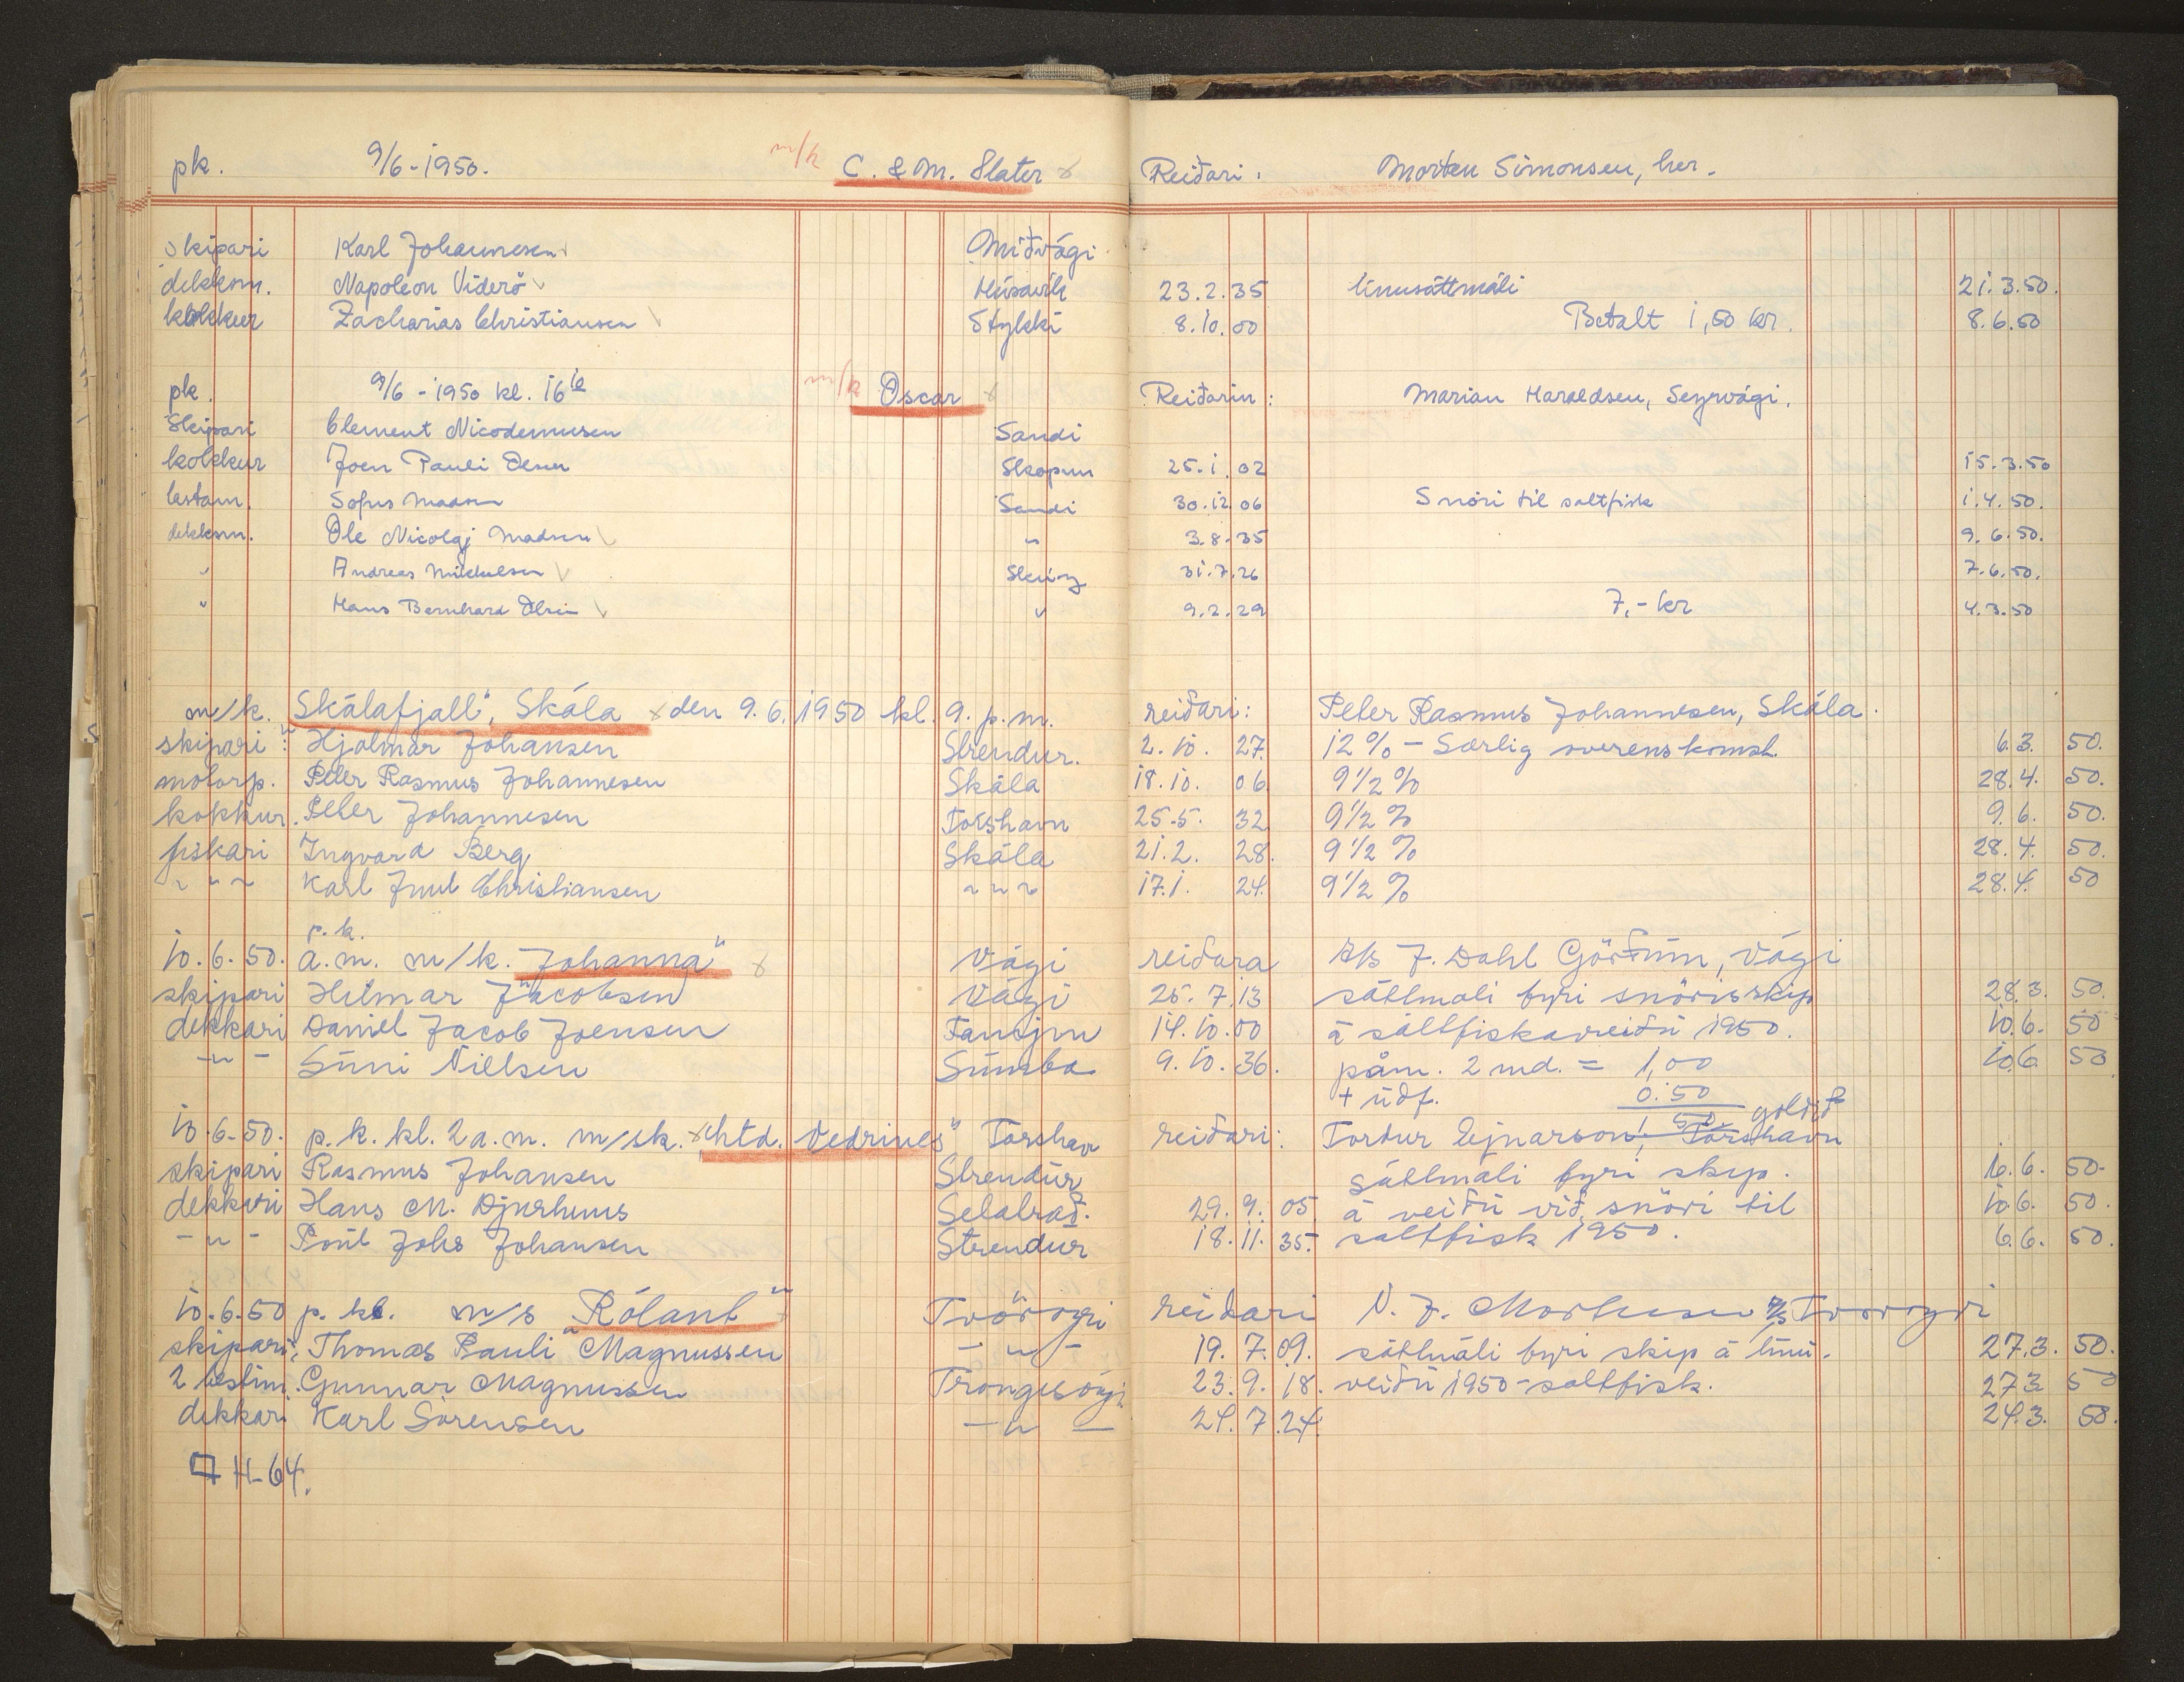 pk. 9/6-1950. m/k C. & M. Slater Reiðari: Morten Simonsen, her.
skipari Karl Johannesen Miðvági
dekksm. Napoleon Viderö Húsavík 23.2.35 línusáttmáli 21.3.50.
kokkur Zacharias Christiansen Stykki 8.10.00 Betalt 1,50 kr. 8.6.50
pk. 9/6-1950 kl. 16 m/k Oscar Reiðarin: Marian Haraldsen, Seyrvági.
Skipari Clement Nicodemusen Sandi
kokkur Joen Pauli Olsen Skopun 25.1.02 15.3.50
bestam. Sofus Madsen Sandi 30.12.06 Snöri til saltfisk 1.4.50.
dekksm. Ole Nicolaj Madsen " 3.8.35 9.6.50.
" Andreas Mikkelsen 31.7.26 7.6.50.
" Hans Bernhard Olsen " 9.2.29 7,- kr 4.3.50
m/k. "Skálafjall", Skála den 9.6.1950 kl. 9. p.m. reiðari: Peter Rasmus Johannesen, Skála.
skipari: Hjalmar Johansen Strendur. 2.10.27. 12% - Særlig overenskomst 6.3.50.
motorp. Peter Rasmus Johannesen Skála 18.10.06 9 1/2 % 28.4.50.
kokkur. Peter Johannesen Torshavn 25.5.32 9 1/2 % 9.6.50.
fiskari Ingvard Berg Skála 21.2.28. 9 1/2 % 28.4.50.
" " " Karl Juul Christiansen " " " 17.1.24. 9 1/2 % 28.4.50
p.k.
10.6.50. a.m. m/k. "Johanna" Vági reiðara A/s J. Dahl Görðum, Vági
skipari Hilmar Jacobsen Vági 25.7.13 sáttmáli fyri snörisskip 28.3.50.
dekkari Daniel Jacob Joensen 14.10.00 á saltfiskaveiðu 1950. 10.6.50
-"- Súni Nielsen Súmba 9.10.36. påm. 2 md. = 1,00 10.6.50
+ údf. 0.50
1.50 goldið
10.6.50. p.k. kl. 2 a.m. m/sk. "chtd. Vedrines" Torshavn reiðari: Torður Ejnarson, Tórshavn
skipari Rasmus Johansen Strendur sáttmáli fyri skip. 10.6.50.
dekkari Hans M. Djurhuus Selatrað. 29.9.05 á veiðu við snöri til 10.6.50.
-"- Poul Johs Johansen Strendur 18.11.35. saltfisk 1950. 6.6.50.
10.6.50 p. kl. m/s "Rólant" Tvöroyri reiðari N. J. Mortensen A/s Tvöroyri
skipari, Thomas Pauli Magnussen -"- 19.7.09. sáttmáli fyri skip á línu- 27.3.50.
2 bestim. Gunnar Magnussen Trongisvági 23.9.18. veiðu 1950-saltfisk. 27.3.50
dekkari Karl Sörensen -"- 24.7.24. 24.3.50.
H-64.